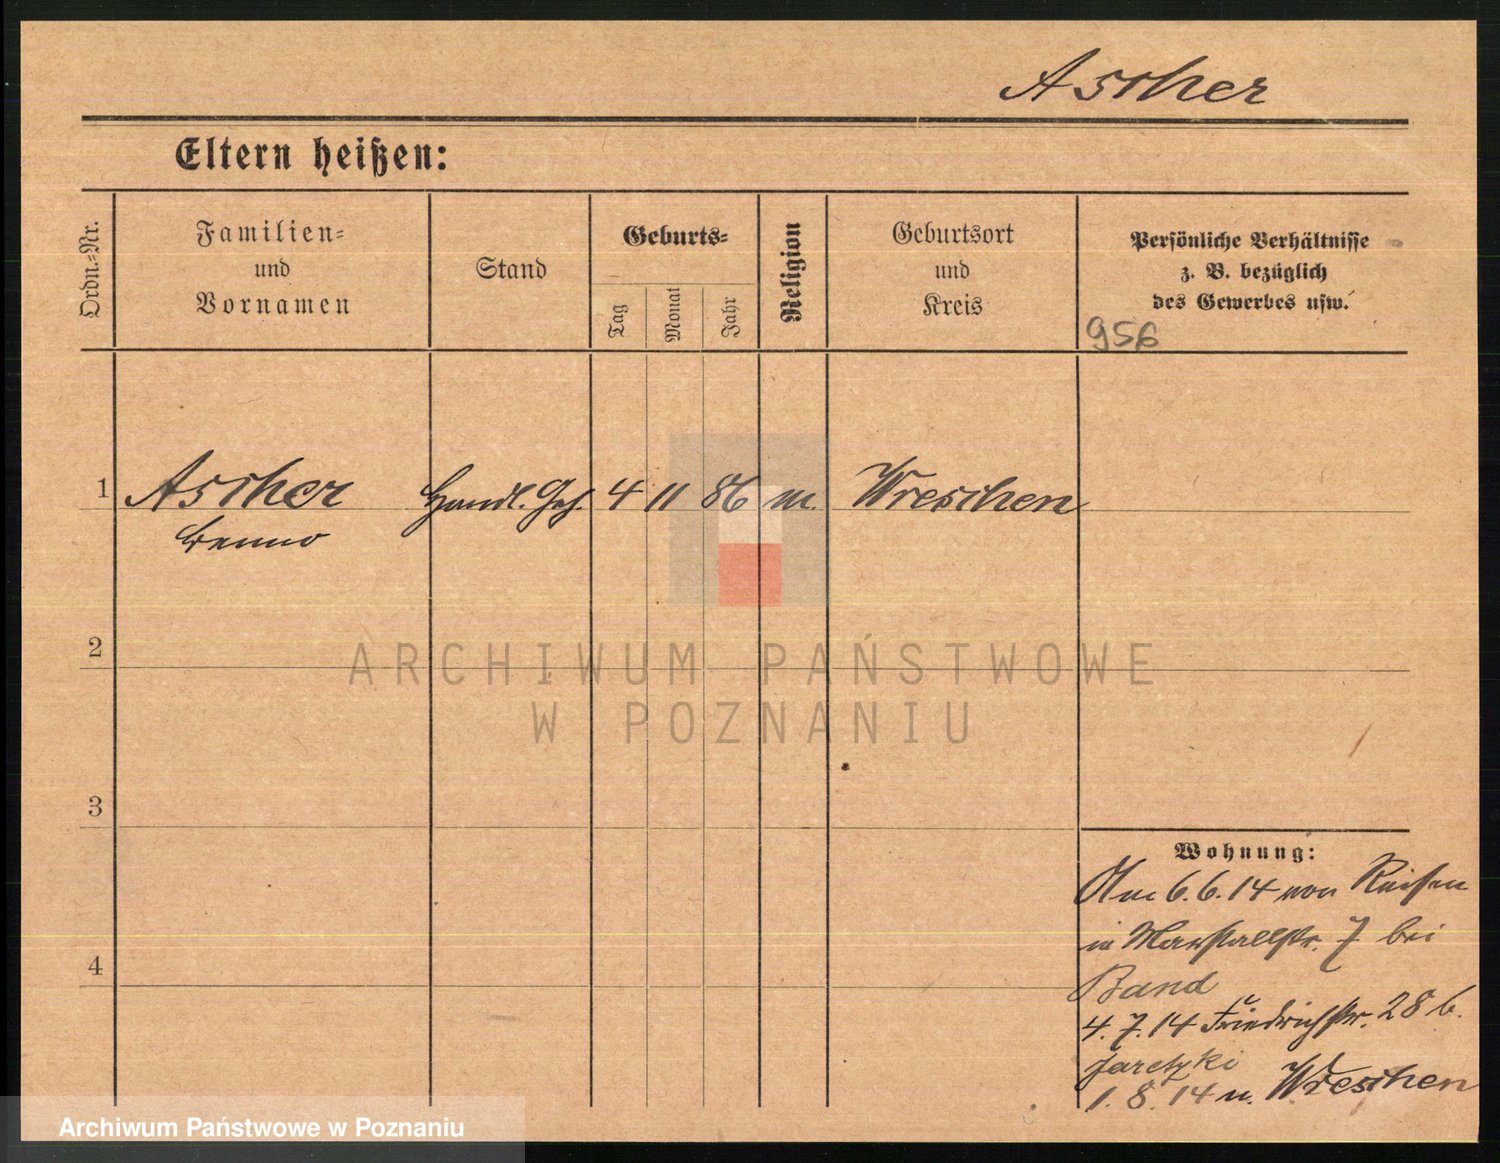 Ascher
Eltern heißen:
Ordn.-Nr.
Familien-
und
Vornamen
Stand
Geburts-
Tag
Monat
Jahr
Religion
Geburtsort
und
Kreis
Persönliche Verhältnisse
z. B. bezüglich
des Gewerbes usw.
956
1 Ascher Handl. Geh. 4 11 86 m. Wreschen
Benno
2
ARCHIWUM PAŃSTWOWE
W POZNANIU
3
4
Wohnung:
Am 6.6.14 von Reisen
in Marstallstr. 7 bei
Band
4.7.14 Friedrichstr. 28 b.
Jaretzki
1.8.14 n. Wreschen
Archiwum Państwowe w Poznaniu